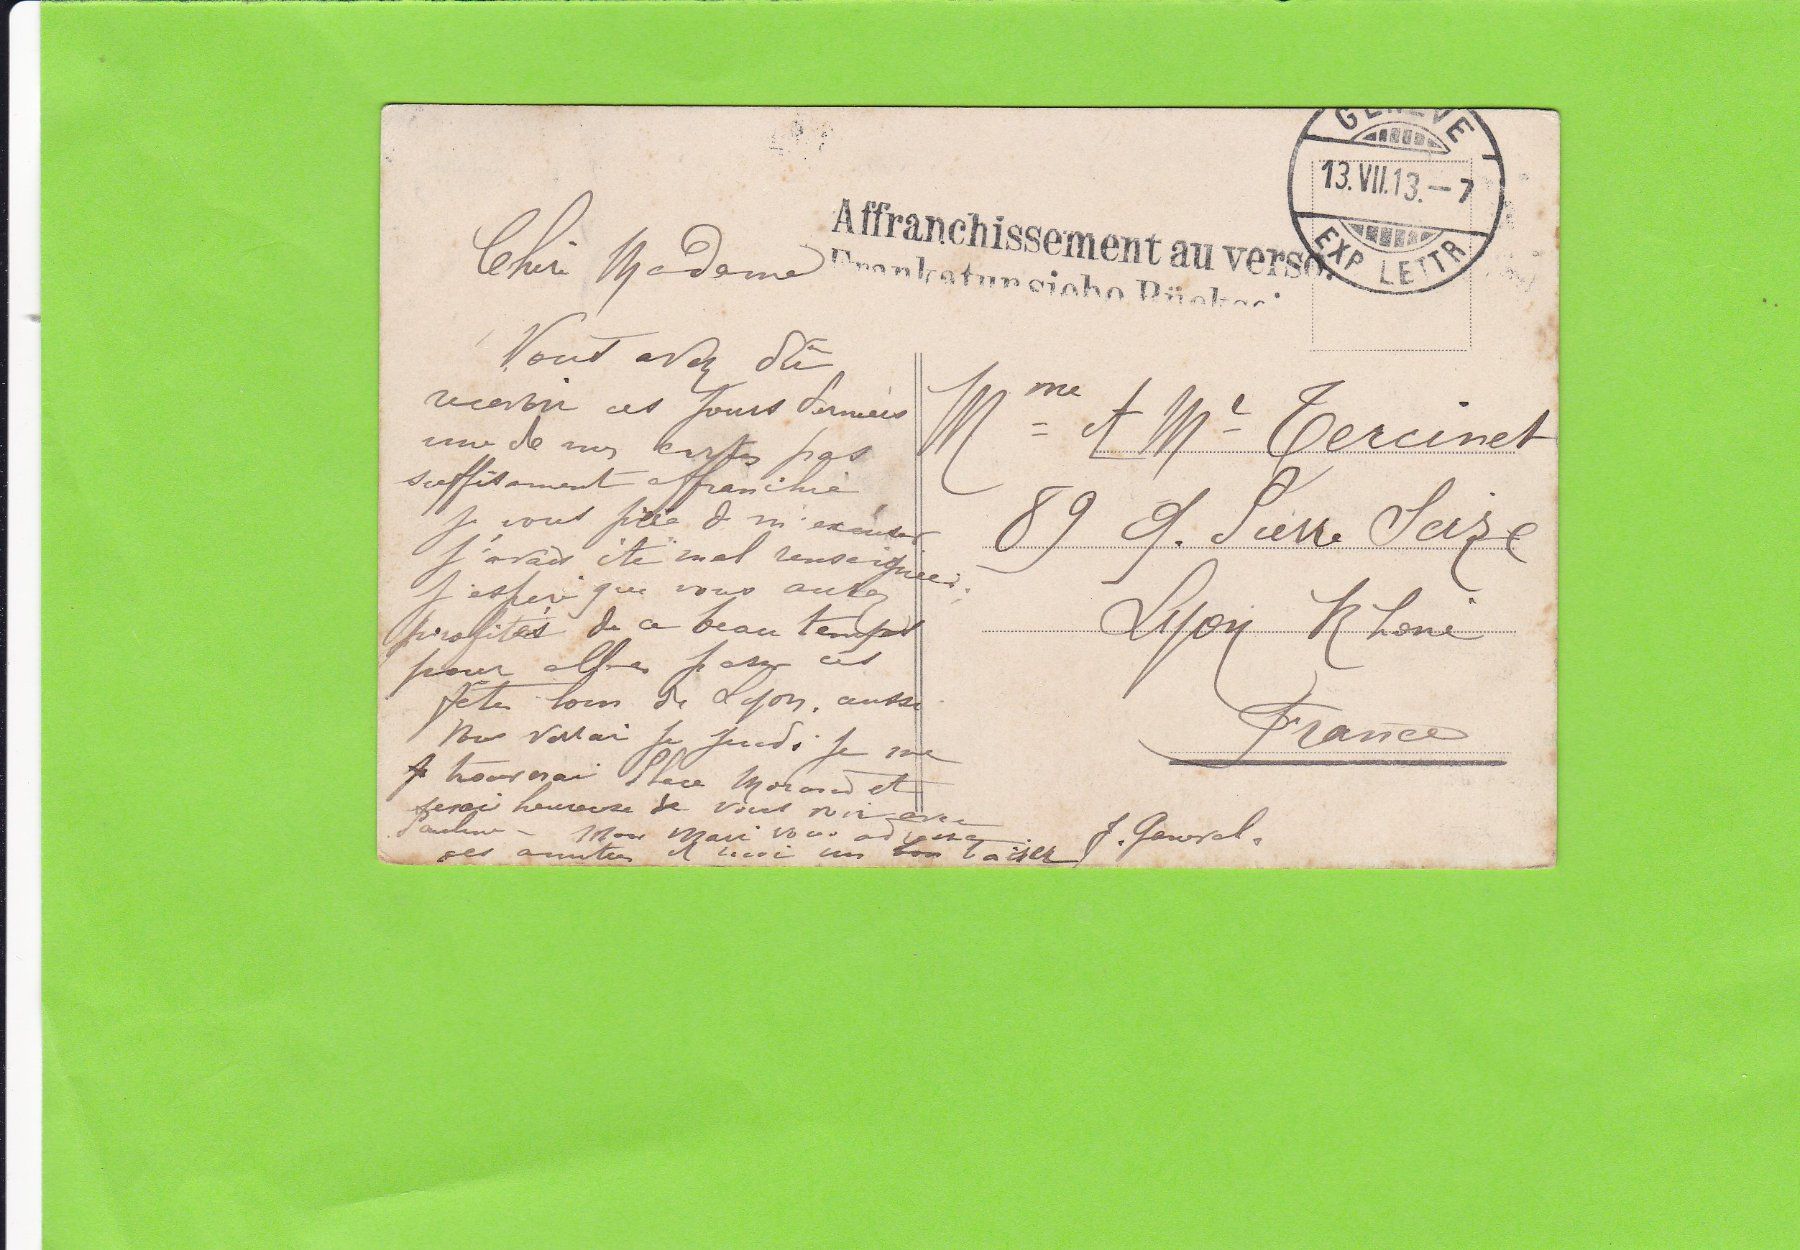 GENÈVE
13.VII.13.-7
EXP LETTR
Affranchissement au verso.
Frankatur siehe Rücksei
Chère Madame
Vous avez dû
recevoir ces jours derniers
une de mes cartes pas
suffisament affranchie
je vous prie de m'excuser
j'avais été mal renseignée.
J'espère que vous aurez
profités de ce beau temps
pour aller passer ces
fêtes loin de Lyon. aussi
je jeudi je me
trouverai Place Morand et
serai heureuse de vous voir avec
Pauline - Mon Mari vous adresse
ses amitiés et moi un bon baiser
J. Generel.
Mme et Mr Tercinet
89 q. Pierre Scize
Lyon Rhône
France